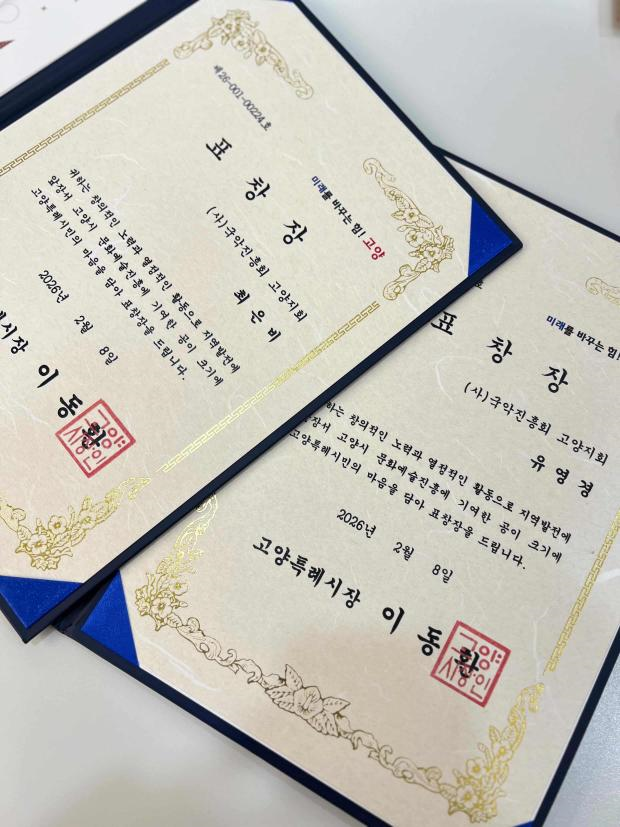 제26-001-00224호
표 창 장
미래를 바꾸는 힘! 고양
(사)국악진흥회 고양지회
최 은 비
귀하는 창의적인 노력과 열정적인 활동으로 지역발전에
앞장서 고양시 문화예술진흥에 기여한 공이 크기에
고양특례시민의 마음을 담아 표창장을 드립니다.
2026년 2월 8일
례시장 이 동 환
고양
시장인
호
표 창 장
미래를 바꾸는 힘!
(사)국악진흥회 고양지회
유 영 경
하는 창의적인 노력과 열정적인 활동으로 지역발전에
장서 고양시 문화예술진흥에 기여한 공이 크기에
고양특례시민의 마음을 담아 표창장을 드립니다.
2026년 2월 8일
고양특례시장 이 동 환
고양
시장인